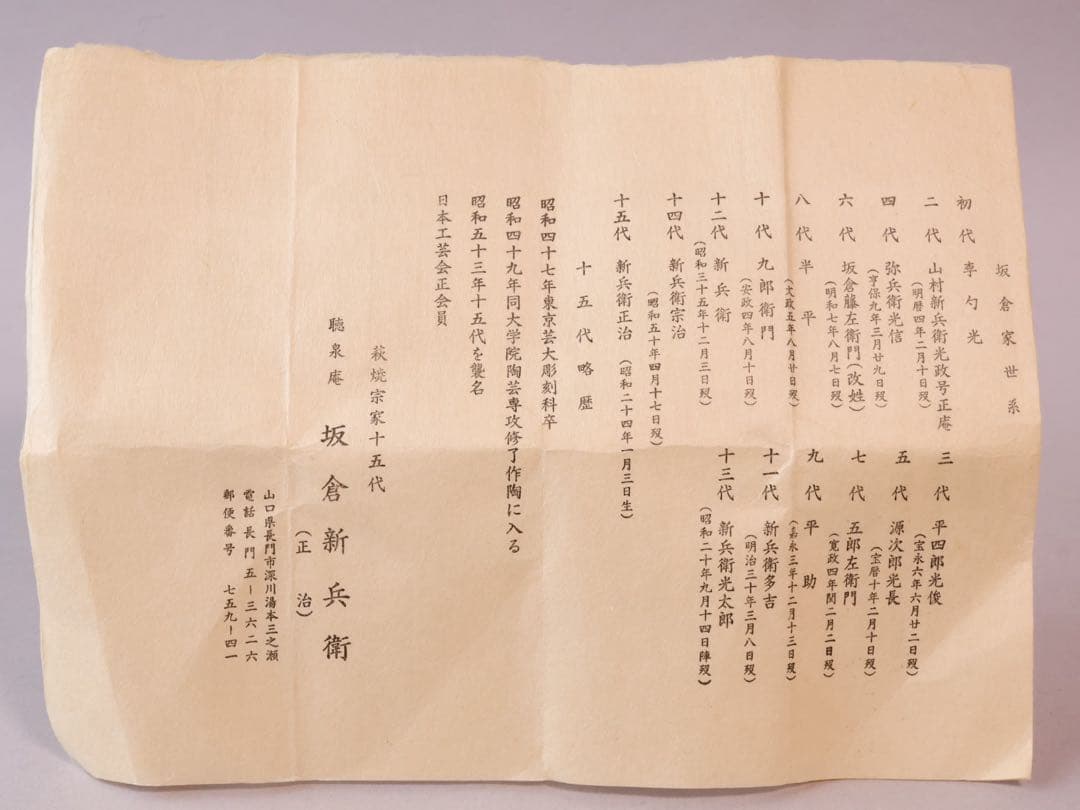 坂倉家世系
初代 李勺光
二代 山村新兵衛光政号正庵
(明暦四年二月十日歿)
三代 平四郎光俊
(宝永六年六月廿二日歿)
四代 弥兵衛光信
(享保九年三月廿九日歿)
五代 源次郎光長
(宝暦十年二月十日歿)
六代 坂倉藤左衛門(改姓)
(明和七年八月七日歿)
七代 五郎左衛門
(寛政四年閏二月二日歿)
八代 半平
(文政五年八月廿日歿)
九代 平助
(嘉永三年十二月十三日歿)
十代 九郎衛門
(安政四年八月十日歿)
十一代 新兵衛多吉
(明治三十年三月八日歿)
十二代 新兵衛
(昭和三十五年十二月三日歿)
十三代 新兵衛光太郎
(昭和二十年九月十四日陣歿)
十四代 新兵衛宗治
(昭和五十年四月十七日歿)
十五代 新兵衛正治 (昭和二十四年一月三日生)
十五代略歴
昭和四十七年東京芸大彫刻科卒
昭和四十九年同大学院陶芸専攻修了作陶に入る
昭和五十三年十五代を襲名
日本工芸会正会員
萩焼宗家十五代
聴泉庵 坂倉新兵衛
(正治)
山口県長門市深川湯本三之瀬
電話長門五-三六二六
郵便番号 七五九-四一